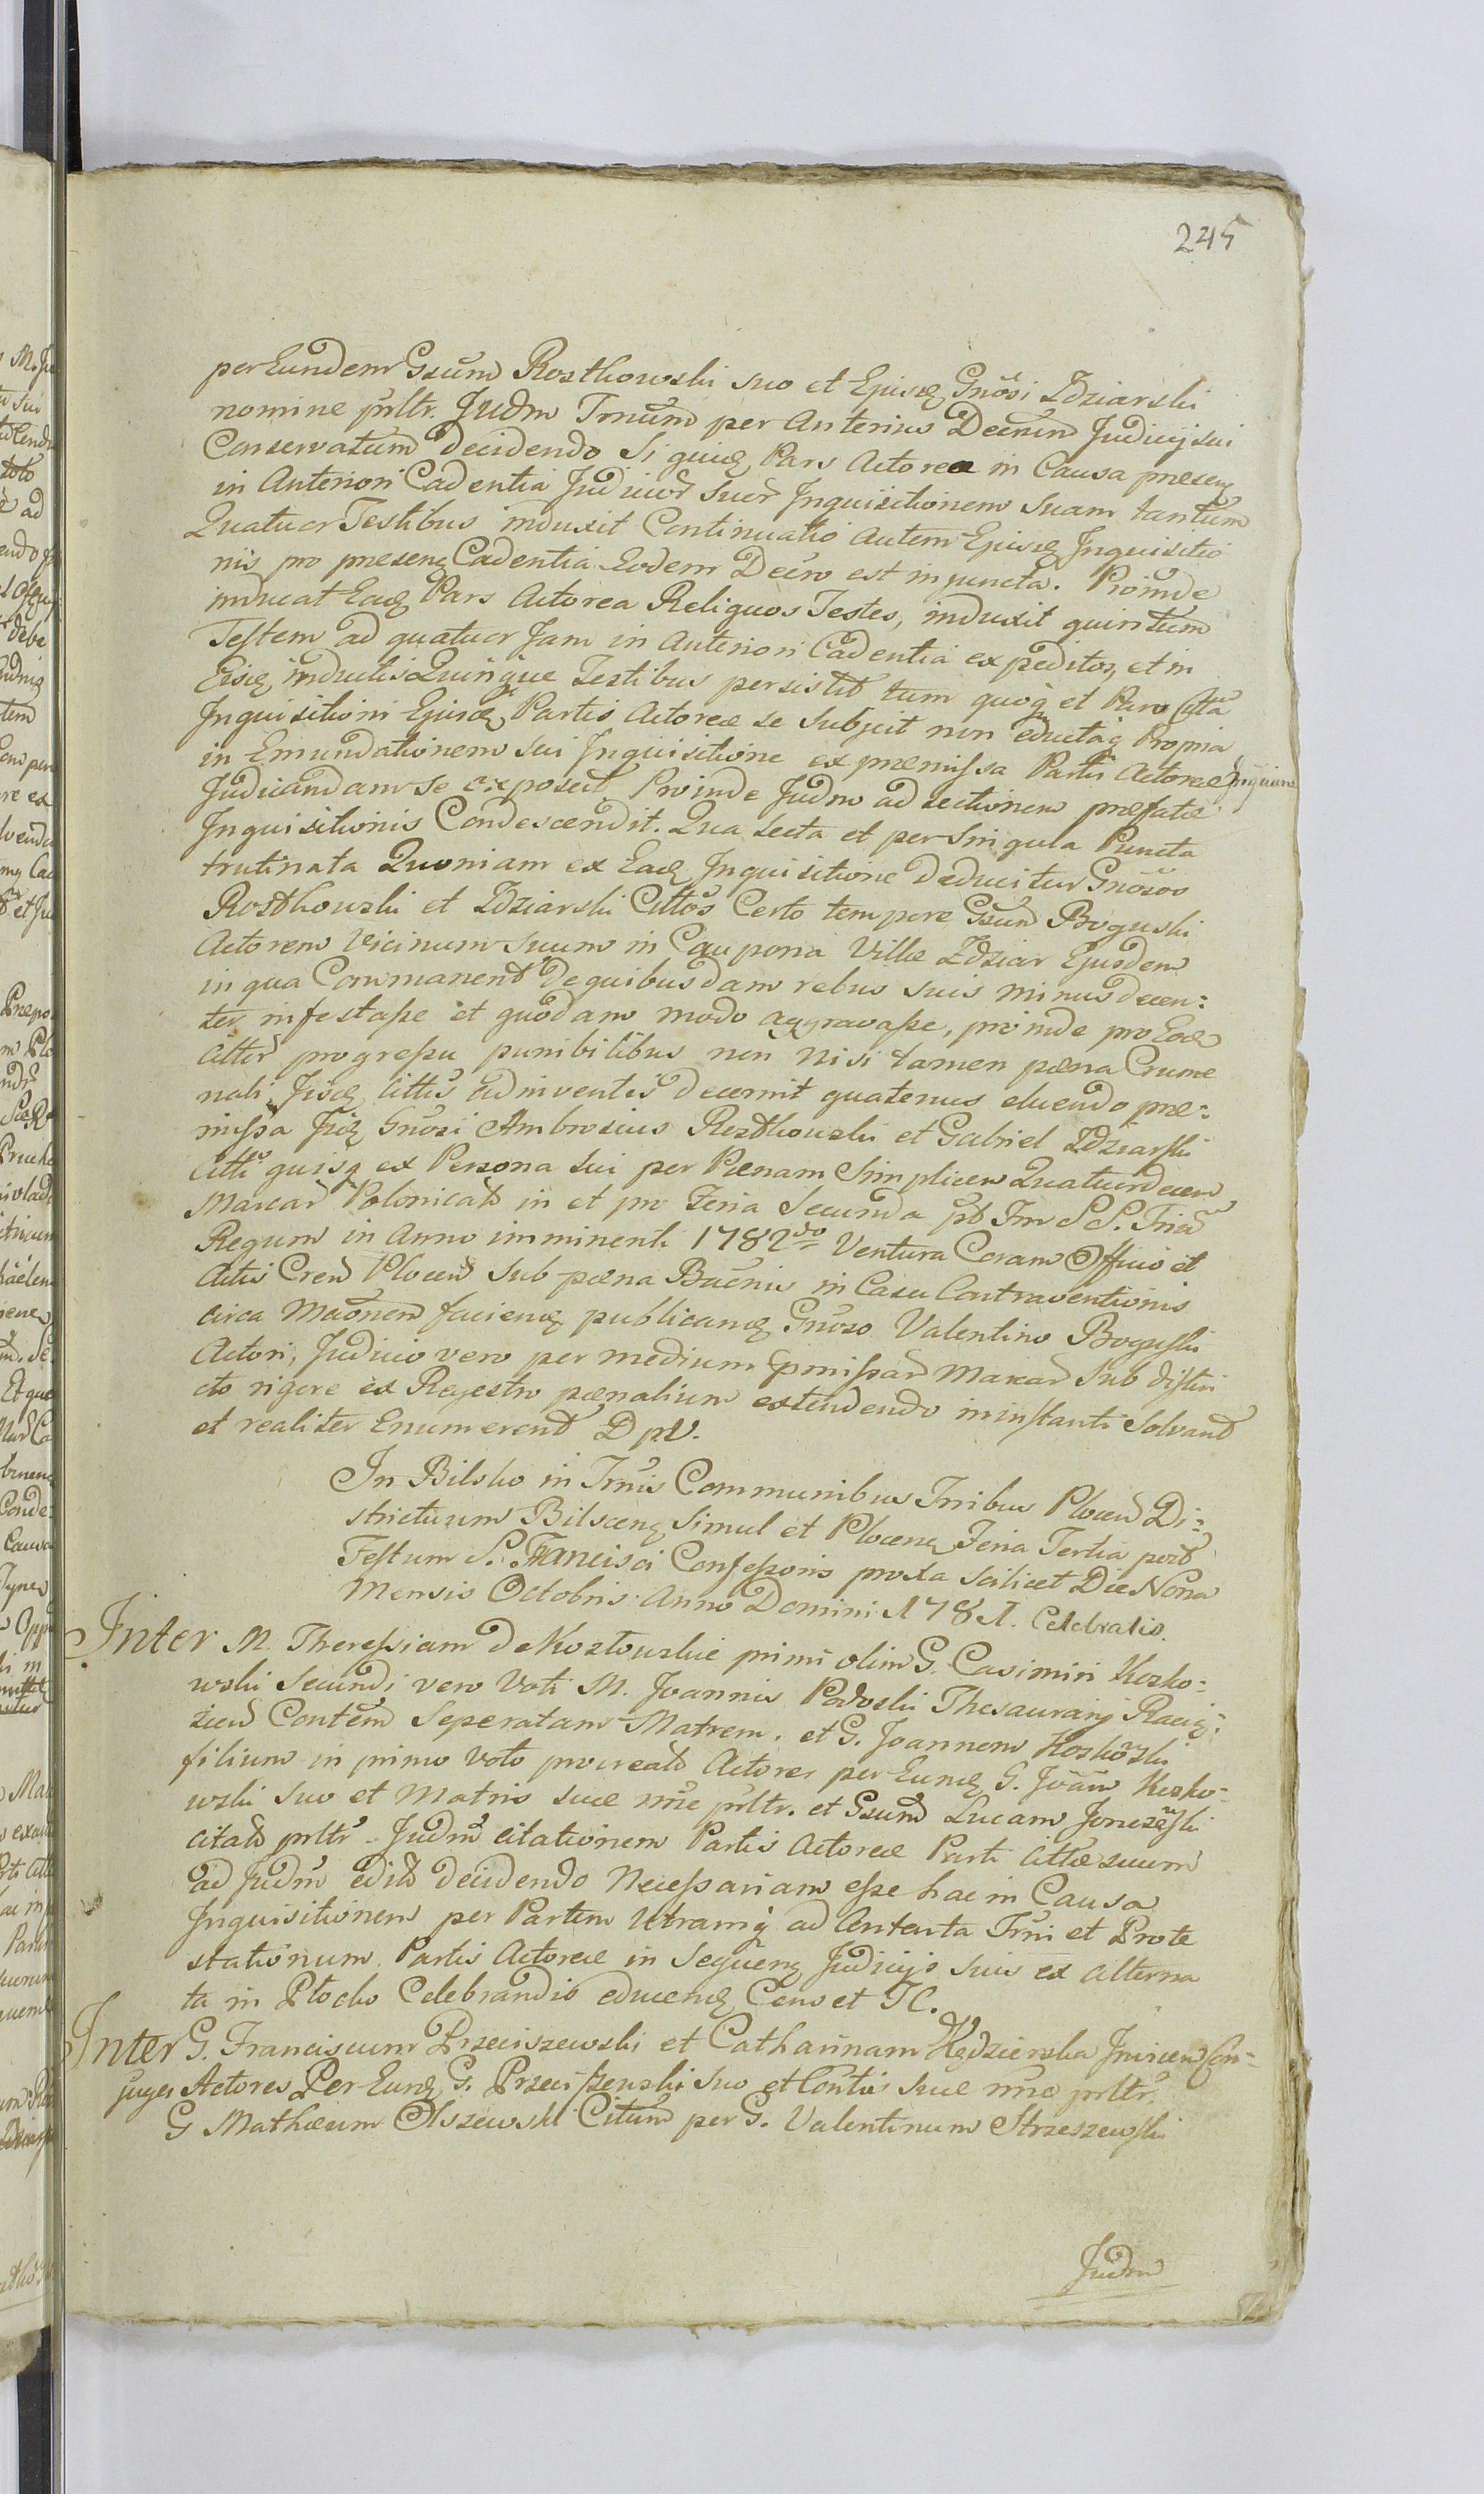 245
per Eundem Gsum Rostkowski suo et Ejusd Gnosi Zdziarski
nomine prltr. Judm Trnum per Anterius Decrum Judicij sui
Conservatum decidendo Siquid Pars Actorea in Causa praesen
in Anteriori Cadentia Judicior Suor Inquisitionem Suam tantum
Quatuor Testibus induxit Continuatio Autem Ejusd Inquisitio
nis pro praesen Cadentia Eodem Decro est injuncta. Proinde
inducat Ead Pars Actorea Reliquos Testes, induxit quintum
Testem ad quatuor Jam in Anteriori Cadentia expeditos, et in
Eisd inductis Quinque Testibus persistit tum quoq et Pars Citta
Inquisitioni Ejusd Partis Actoreae se Subjecit non eductaq Propria
in Emundationem sui Inquisitione ex praemissa Partis Actoreae Inquisne
Judicandam se exposcit Proinde Judm ad lectionem praefatae
Inquisitionis Condescendit. Qua lecta et per Singula Puncta
trutinata Quoniam ex Ead Inquisitione deducitur Gnosos
Rostkowski et Zdziarski Cittos Certo tempore Gsum Boguski
Actorem Vicinum suum in Caupona Villae Zdziar Ejusdem
in qua Commanent de quibusdam rebus suis minus decen:
ter infestasse et quodam modo aggravasse, proinde pro Eor
Cittor progressu punibilibus non nisi tamen paena Crume
nali Iisd Cittis adinventis decernit quatenus eluendo prae:
missa Iid Gnosi Ambrosius Rostkowski et Gabriel Zdziarski
Citti quisq ex Persona sui per Paenam Simplicem Quatuordecem
Marcar Polonicals in et pro Feria Secunda pt Fm S S. Triu
Regum in Anno imminenti 1782do Ventura Coram Officio et
Actis Cren Plocen Sub paena Bacnis in Casu Contraventionis
circa Maonem faciend publicand Gnoso Valentino Boguski
Actori, Judicio vero per medium Epmissar Marcar Sub distri
cto rigore ex Regestro paenalium extendendo ininstanti Solvant
et realiter Enumerent D pt.
In Bilsko in Trnis Communibus Tribus Plocen Di:
strictuum Bilscen Simul et Plocen Feria Tertia post
Festum S. Francisci Confessoris proxa scilicet Die Nona
Mensis Octobris Anno Domini 1781. Celebratis.
Inter M. Theressiam de Kozłowskie primi olim G. Casimiri Kosko:
wski Secundi vero Voti M. Joannis Podoski Thesaurarij Raciąz:
zien Contem Seperatam Matrem. et G. Joannem Koskowski
filium in primo Voto procreatt Actores per Eund G. Joan Kosko-
wski suo et Matris suae nne prltr. et Gsum Lucam
citatt prltr Judm citationem Partis Actoreae Parti Cittae suum
ad Judm edit decidendo Necessariam esse hac in Causa
Inquisitionem per Partem Utramq ad Contenta Trni et Prote
stationum Partis Actoreae in Sequen Judicijs Suis ex alterna
ta in Płocko Celebrandis educend Cens et JC.
Inter G. Franciscum Przeciszewski et Catharinam Kędzierska Invicem Con-
juges Actores Per Eund G. Przeciszewski Suo et Contis Suae nne prltr.
G Mathaeum Olszewski Cittum per G. Valentinum Strzeszewski
Judm